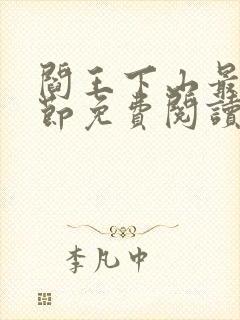 閻王下山最
節免費閱讀
李凡中